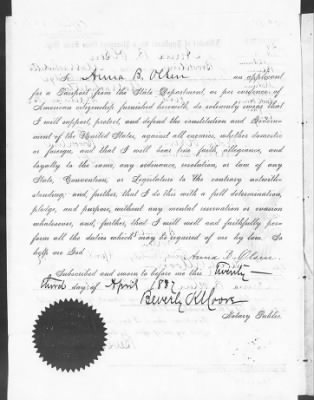 I, Anna B. Olsen an applicant
for a Passport from the State Department, as per evidence of
American citizenship furnished herewith, do solemnly swear that
I will support, protect, and defend the constitution and Govern-
ment of the United States, against all enemies, whether domestic
or foreign, and that I will bear true faith, allegiance, and
loyalty to the same, any ordinance, resolution, or law of any
State, Convention, or Legislature to the contrary notwith-
standing; and further, that I do this with a full determination,
pledge, and purpose, without any mental reservation or evasion
whatsoever, and, further, that I will well and faithfully per-
form all the duties which may be required of me by law. So
help me God
Anna B. Olsen
Subscribed and sworn to before me this twenty—
third day of April 1887
Beverly K Moore
Notary Public.